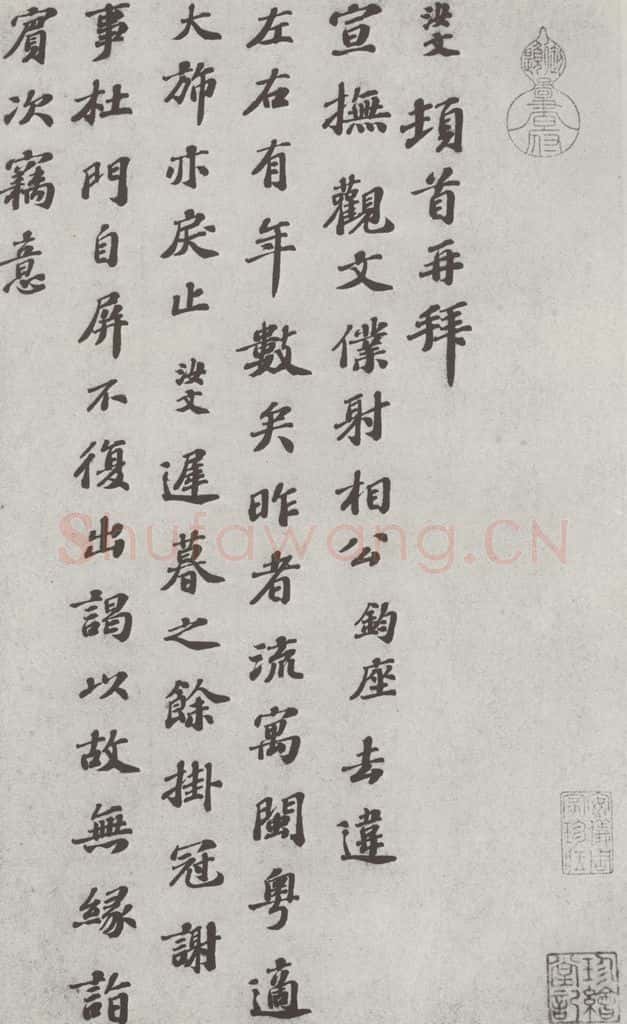 汝文頓首再拜
宣撫觀文僕射相公鈞座去違
左右有年數矣昨者流寓閩粤適
大斾亦戾止汝文遲暮之餘掛冠謝
事杜門自屏不復出謁以故無緣詣
賓次竊意
Shufawang.CN
珍繪堂記